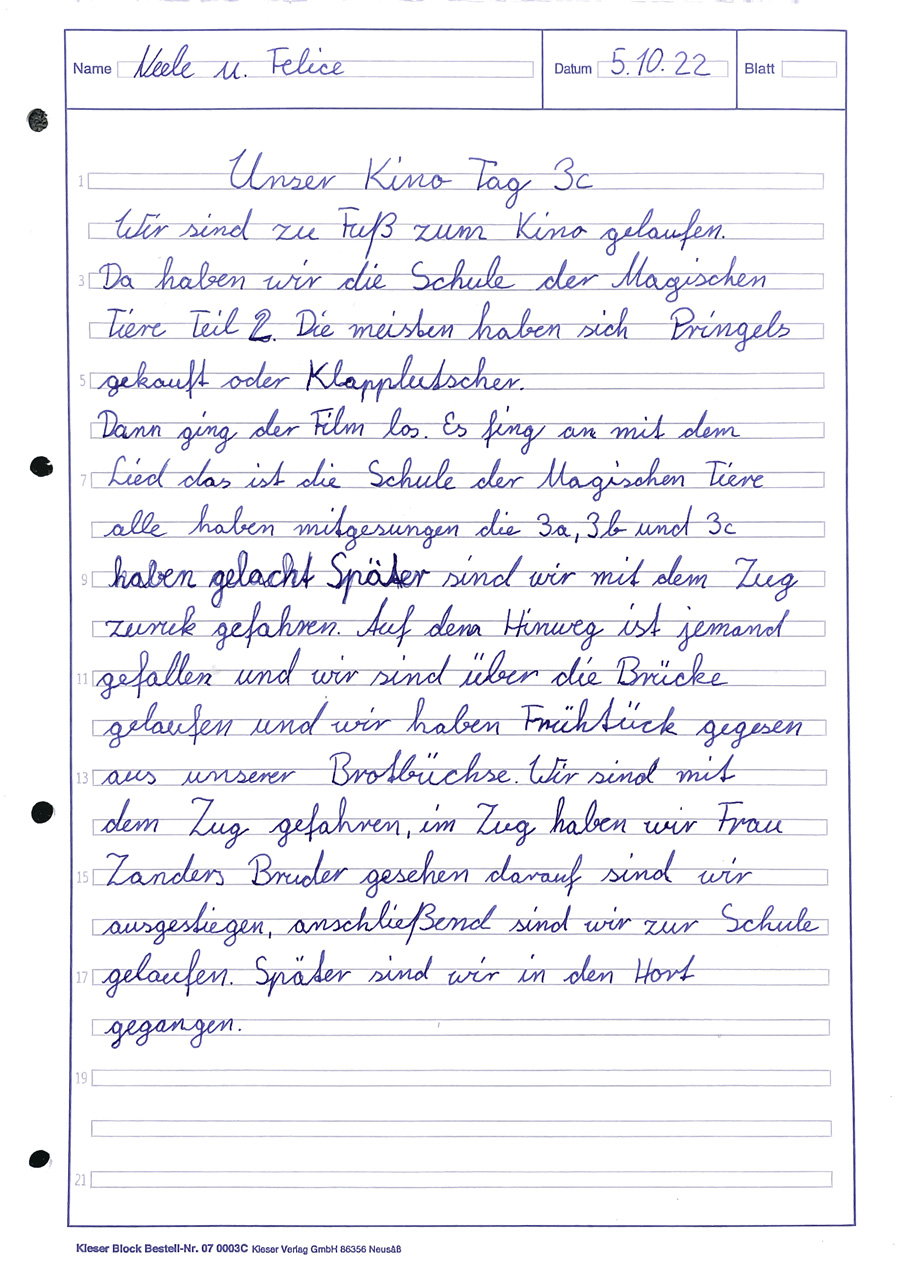 Name Neele u. Felice Datum 5.10.22 Blatt
1 Unser Kino Tag 3c
Wir sind zu Fuß zum Kino gelaufen.
3 Da haben wir die Schule der Magischen
Tiere Teil 2. Die meisten haben sich Pringels
5 gekauft oder Klapplutscher.
Dann ging der Film los. Es fing an mit dem
7 Lied das ist die Schule der Magischen Tiere
alle haben mitgesungen die 3a, 3b und 3c
9 haben gelacht Später sind wir mit dem Zug
zuruk gefahren. Auf dem Hinweg ist jemand
11 gefallen und wir sind über die Brücke
gelaufen und wir haben Frühtück gegesen
13 aus unserer Brotbüchse. Wir sind mit
dem Zug gefahren, im Zug haben wir Frau
15 Zanders Bruder gesehen darauf sind wir
ausgestiegen, anschließend sind wir zur Schule
17 gelaufen. Später sind wir in den Hort
gegangen.
19
21
Kieser Block Bestell-Nr. 07 0003C Kieser Verlag GmbH 86356 Neusäß